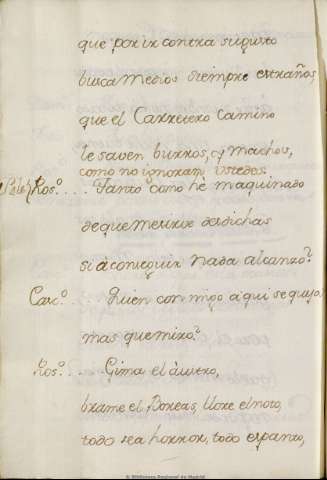 que por ir contra su gusto
busca medios siempre extraños,
que el Carretero Camino
le saven burros, y machos,
como no ignoran Ustedes.
Sale Ros.º .... Tanto como hé maquinado
de que me sirve desdichas
si á conseguir nada alcanzo?
Carc.º .... Quien conmigo aqui se quejó.
mas que miro?
Ros.º .... Gima el áustro,
brame el Boreas, llore el noto,
todo sea horror, todo espanto,
© Biblioteca Regional de Madrid